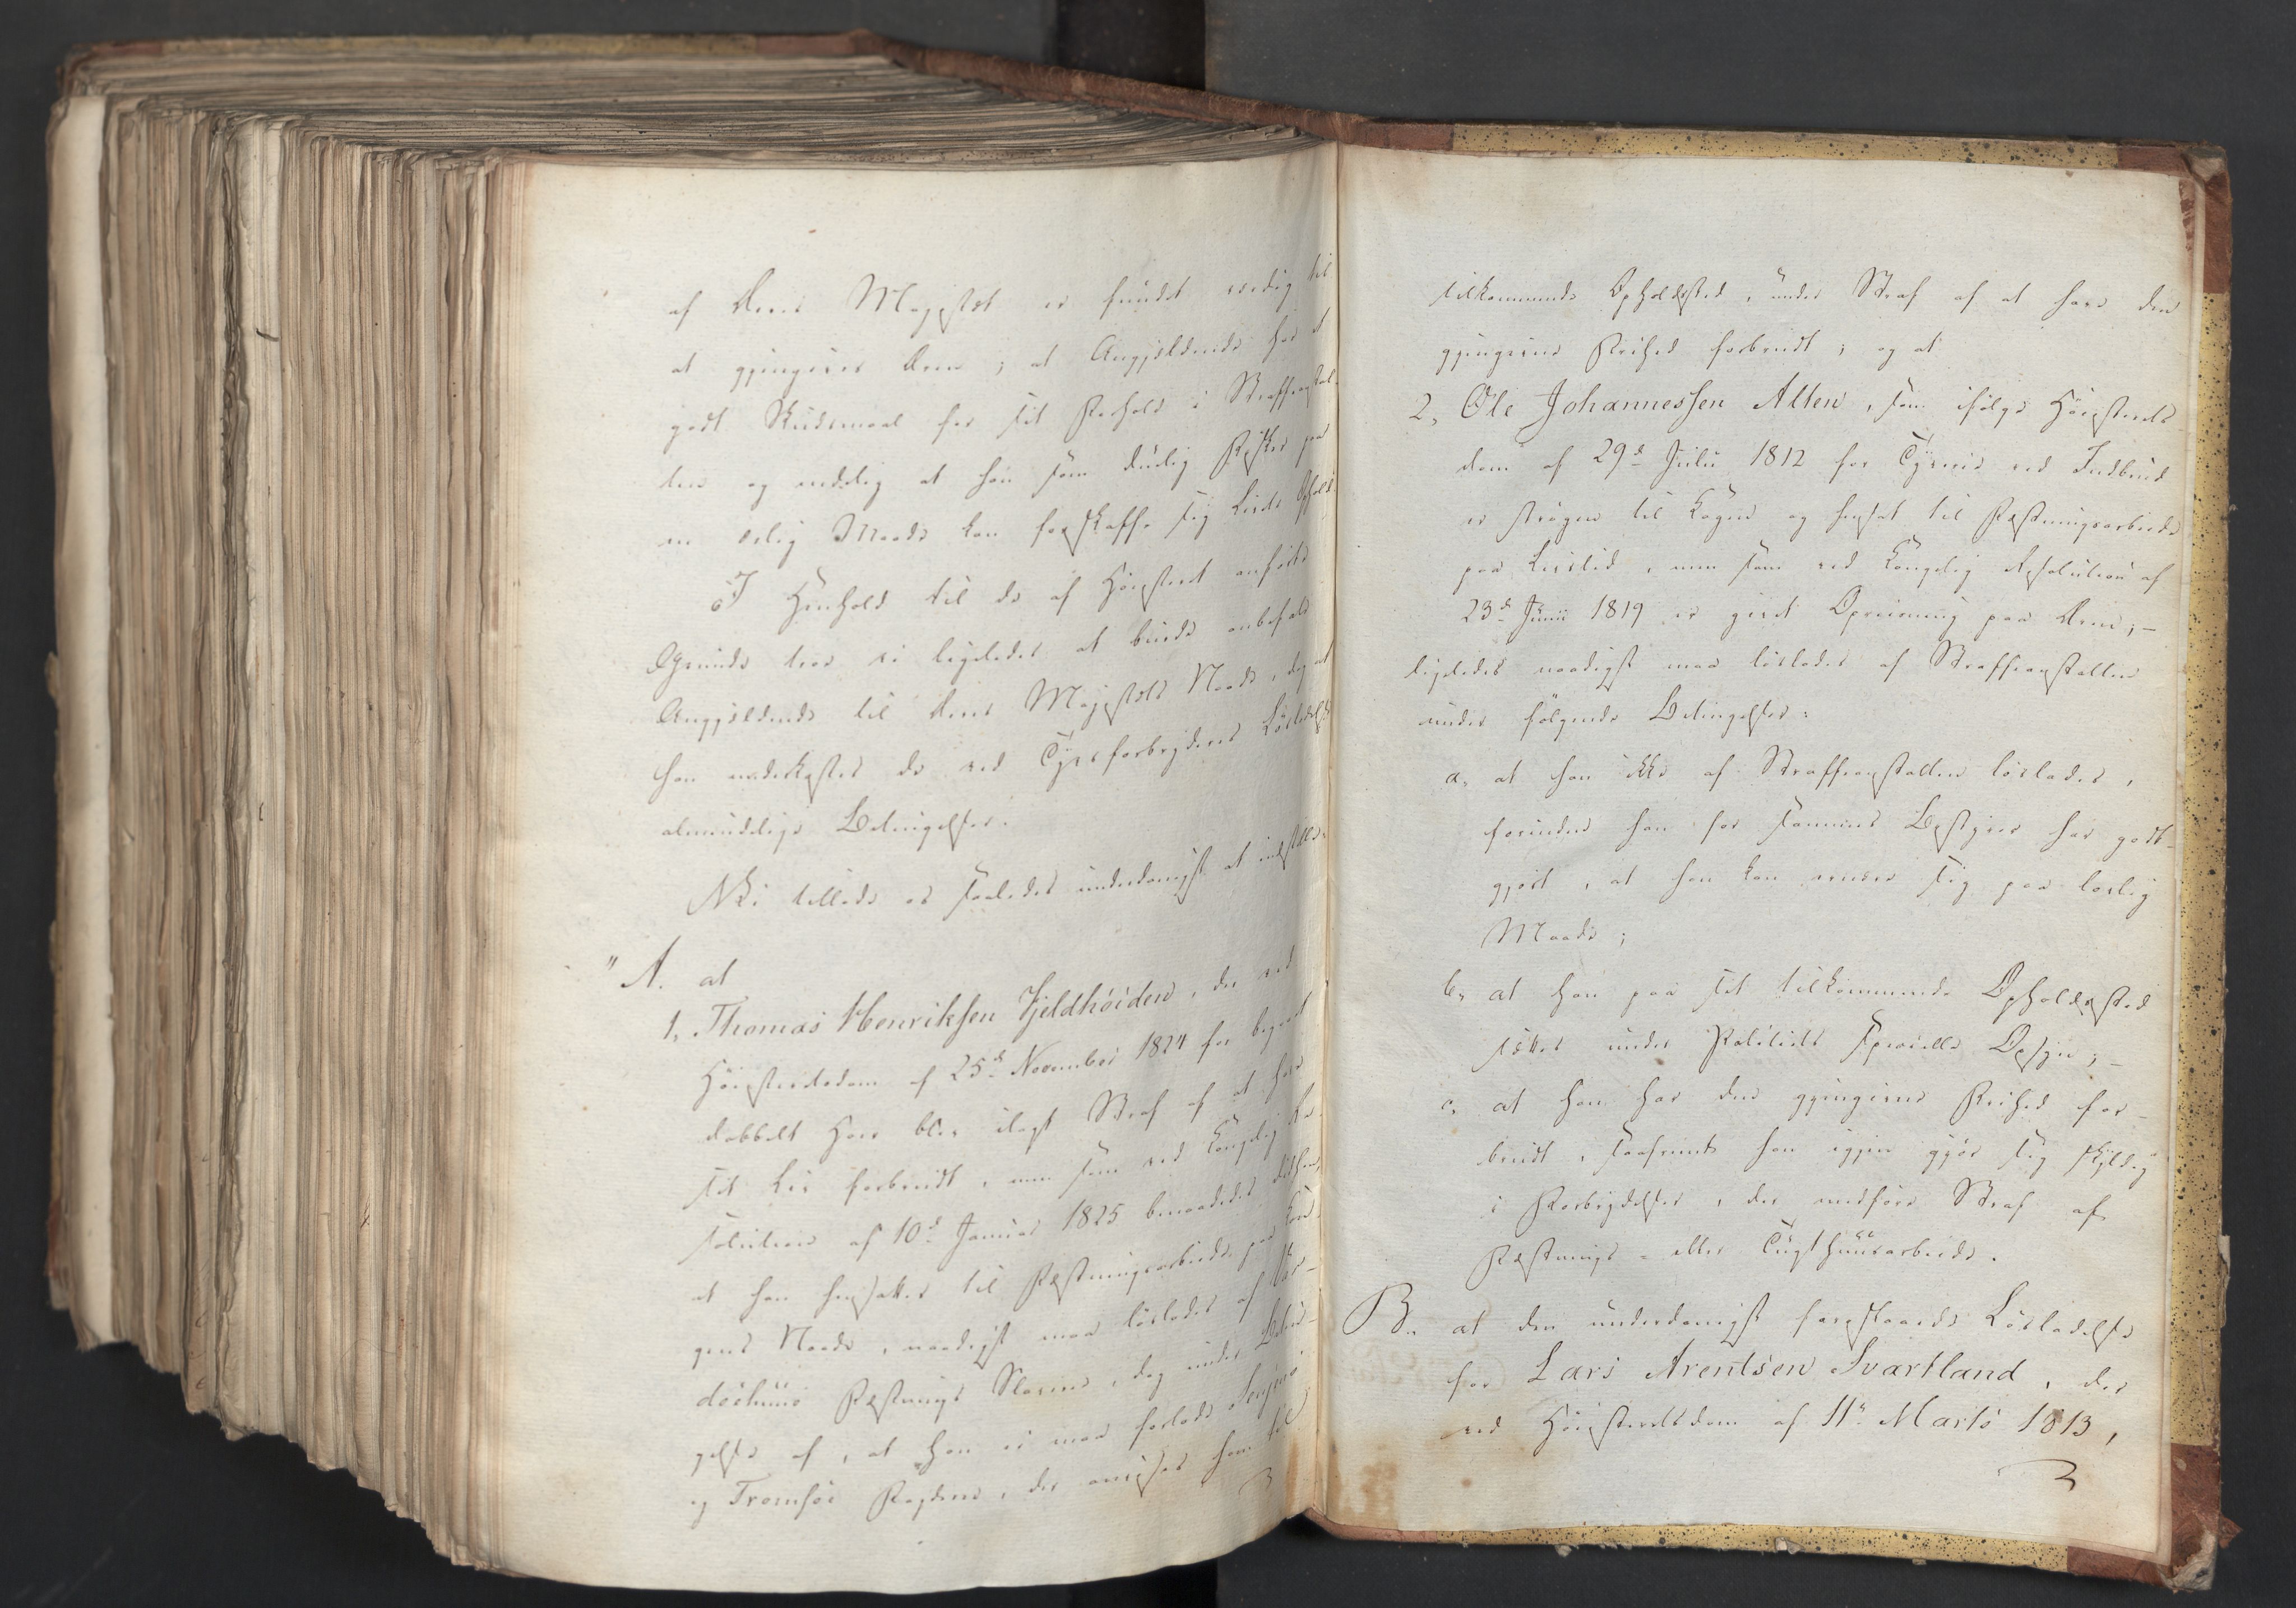 af Deres Majestæt er fundet værdig til
at gjengives Æren; at Angjeldende har et
godt Skudsmaal for sit Forhold i Straffeanstal-
ten og endelig at han som duelig Fisker paa
en ærlig Maade kan forskaffe sig Livets Ophold.
I Henhold til de af Høiesteret anførte
Grunde troe vi ligeledes at burde anbefale
Angjeldende til Deres Majestæts Naade, dog at
han underkastes de ved Tyvsforbryderes Løsladelse
almindelige Betingelser.
Vi tillade os saaledes underdanigst at indstille:
"A. at
1, Thomas Henriksen Fjeldhøiden, der ved
Høiesteretsdom af 25de November 1824 for begaaet
dobbelt Hoer blev ilagt Straf af at have
sit Liv forbrudt, men som ved Kongelig Re-
solution af 10de Januar 1825 benaadedes derhen,
at han hensattes til Fæstningsarbeide paa Kon-
gens Naade, naadigst maa løslades af Var-
døehuus Fæstnings Slaverie, dog under Betin-
gelse af, at han ei maa forlade Senjens
og Tromsøe Fogderie, der anvises ham til
tilkommende Opholdssted, under Straf af at have den
gjengivne Frihed forbrudt; og at
2, Ole Johannessen Alten, som ifølge Høiesterets-
dom af 29de Julii 1812 for Tyverie ved Indbrud
er strøgen til Kagen og hensat til Fæstningsarbeide
paa Livstid, men som ved Kongelig Resolution af
23de Junii 1819 er givet Opreisning paa Æren;-
ligeledes naadigst maa løslades af Straffeanstalten
under følgende Betingelser:
a, at han ikke af Straffeanstalten løslades,
forinden han for sammes Bestyrer har godt-
gjort, at han kan ernære sig paa lovlig
Maade;
b, at han paa sit tilkommende Opholdssted
sættes under Politiets specielle Opsyn;-
c, at han har den gjengivne Frihed for-
brudt, saafremt han igjen gjør sig skyldig
i Forbrydelser, der medføre Straf af
Fæstnings- eller Tugthuusarbeide.
B. at den underdanigst foreslaaede Løsladelse
for Lars Arentsen Svartland, der
ved Høiesteretsdom af 11te Marts 1813,